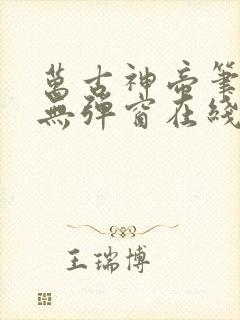 萬古神帝筆
無彈窗在綫
王瑞博